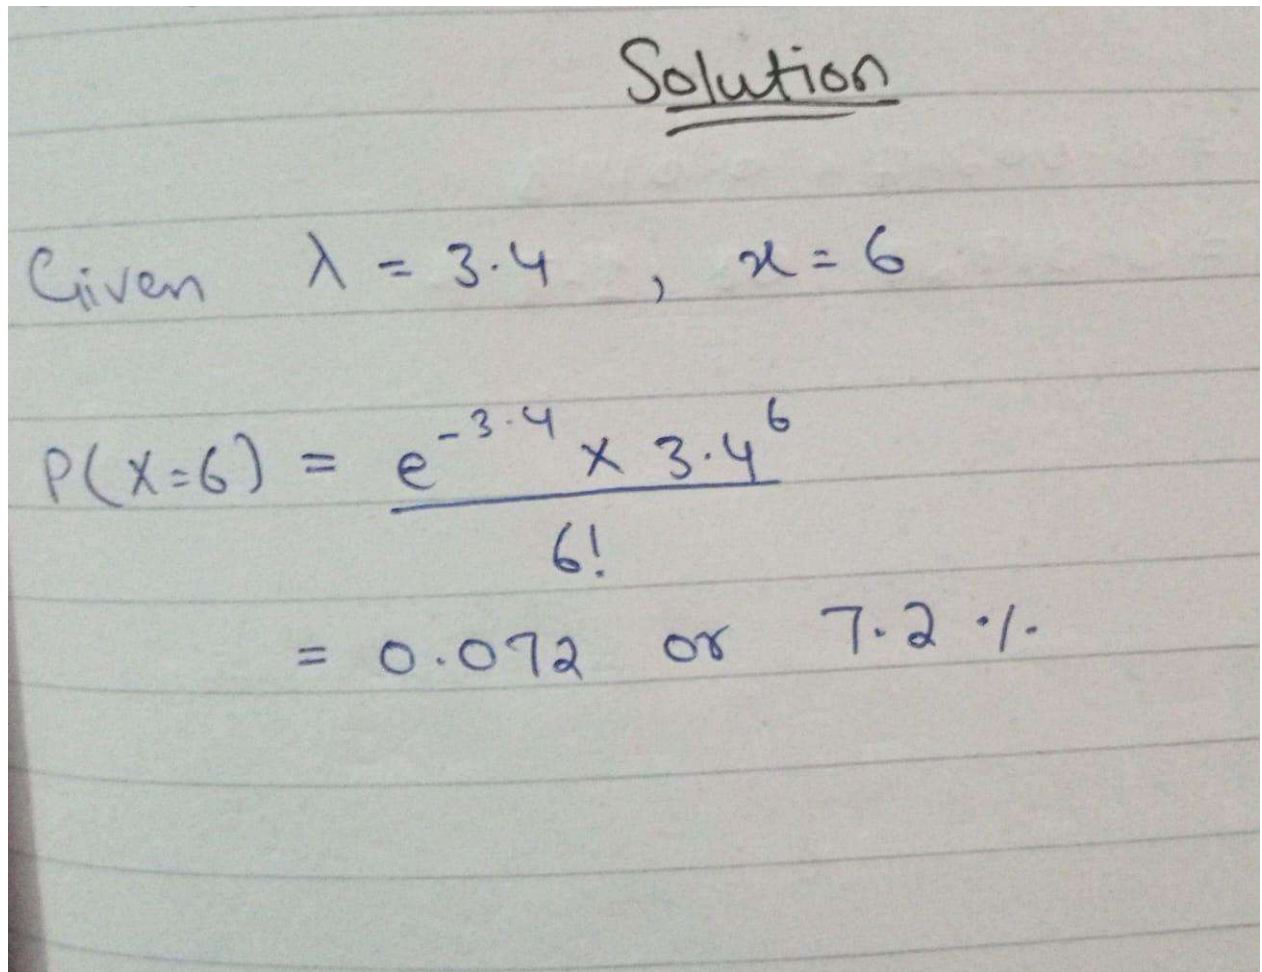 Solution
Given λ = 3.4 , x = 6
P(X=6) = e^-3.4 × 3.4^6
6!
= 0.072 or 7.2 %